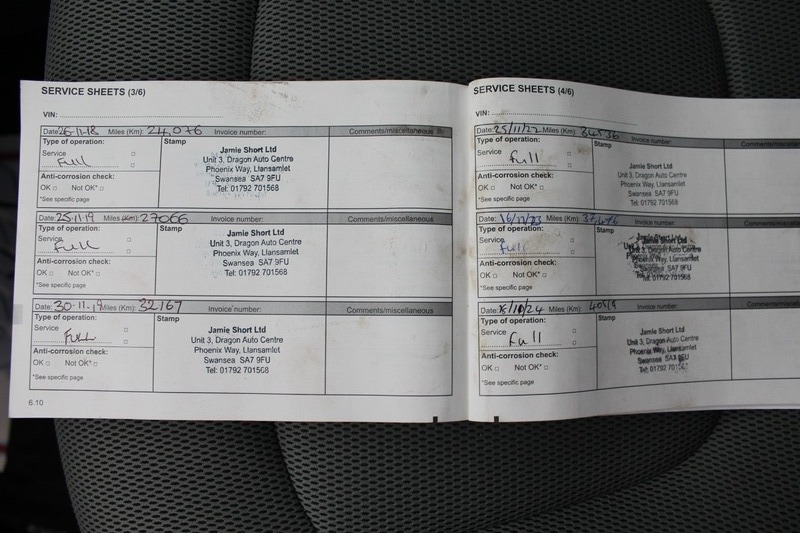 SERVICE SHEETS (3/6)
VIN:
Date: 26-11-18 Miles (Km): 24,076 Invoice number: Comments/miscellaneous
Type of operation: Stamp
Service Full
Anti-corrosion check:
OK Not OK*
*See specific page
Jamie Short Ltd
Unit 3, Dragon Auto Centre
Phoenix Way, Llansamlet
Swansea SA7 9FU
Tel: 01792 701568
Date: 25-11-19 Miles (Km): 27066 Invoice number: Comments/miscellaneous
Type of operation: Stamp
Service Full
Anti-corrosion check:
OK Not OK*
*See specific page
Jamie Short Ltd
Unit 3, Dragon Auto Centre
Phoenix Way, Llansamlet
Swansea SA7 9FU
Tel: 01792 701568
Date: 30-11-19 Miles (Km): 32167 Invoice number: Comments/miscellaneous
Type of operation: Stamp
Service Full
Anti-corrosion check:
OK Not OK*
*See specific page
Jamie Short Ltd
Unit 3, Dragon Auto Centre
Phoenix Way, Llansamlet
Swansea SA7 9FU
Tel: 01792 701568
6.10
SERVICE SHEETS (4/6)
VIN:
Date: 25/11/22 Miles (Km): 34536 Invoice number: Comments/miscellane
Type of operation: Stamp
Service Full
Anti-corrosion check:
OK Not OK*
*See specific page
Jamie Short Ltd
Unit 3, Dragon Auto Centre
Phoenix Way, Llansamlet
Swansea SA7 9FU
Tel: 01792 701568
Date: Miles (Km): Invoice number: Comments/miscellane
Type of operation: Stamp
Service Full
Anti-corrosion check:
OK Not OK*
*See specific page
Jamie Short Ltd
Unit 3, Dragon Auto Centre
Phoenix Way, Llansamlet
Swansea SA7 9FU
Tel: 01792 701568
Date: Miles (Km): Invoice number: Comments/miscellane
Type of operation: Stamp
Service Full
Anti-corrosion check:
OK Not OK*
*See specific page
Jamie Short Ltd
Unit 3, Dragon Auto Centre
Phoenix Way, Llansamlet
Swansea SA7 9FU
Tel: 01792 701568